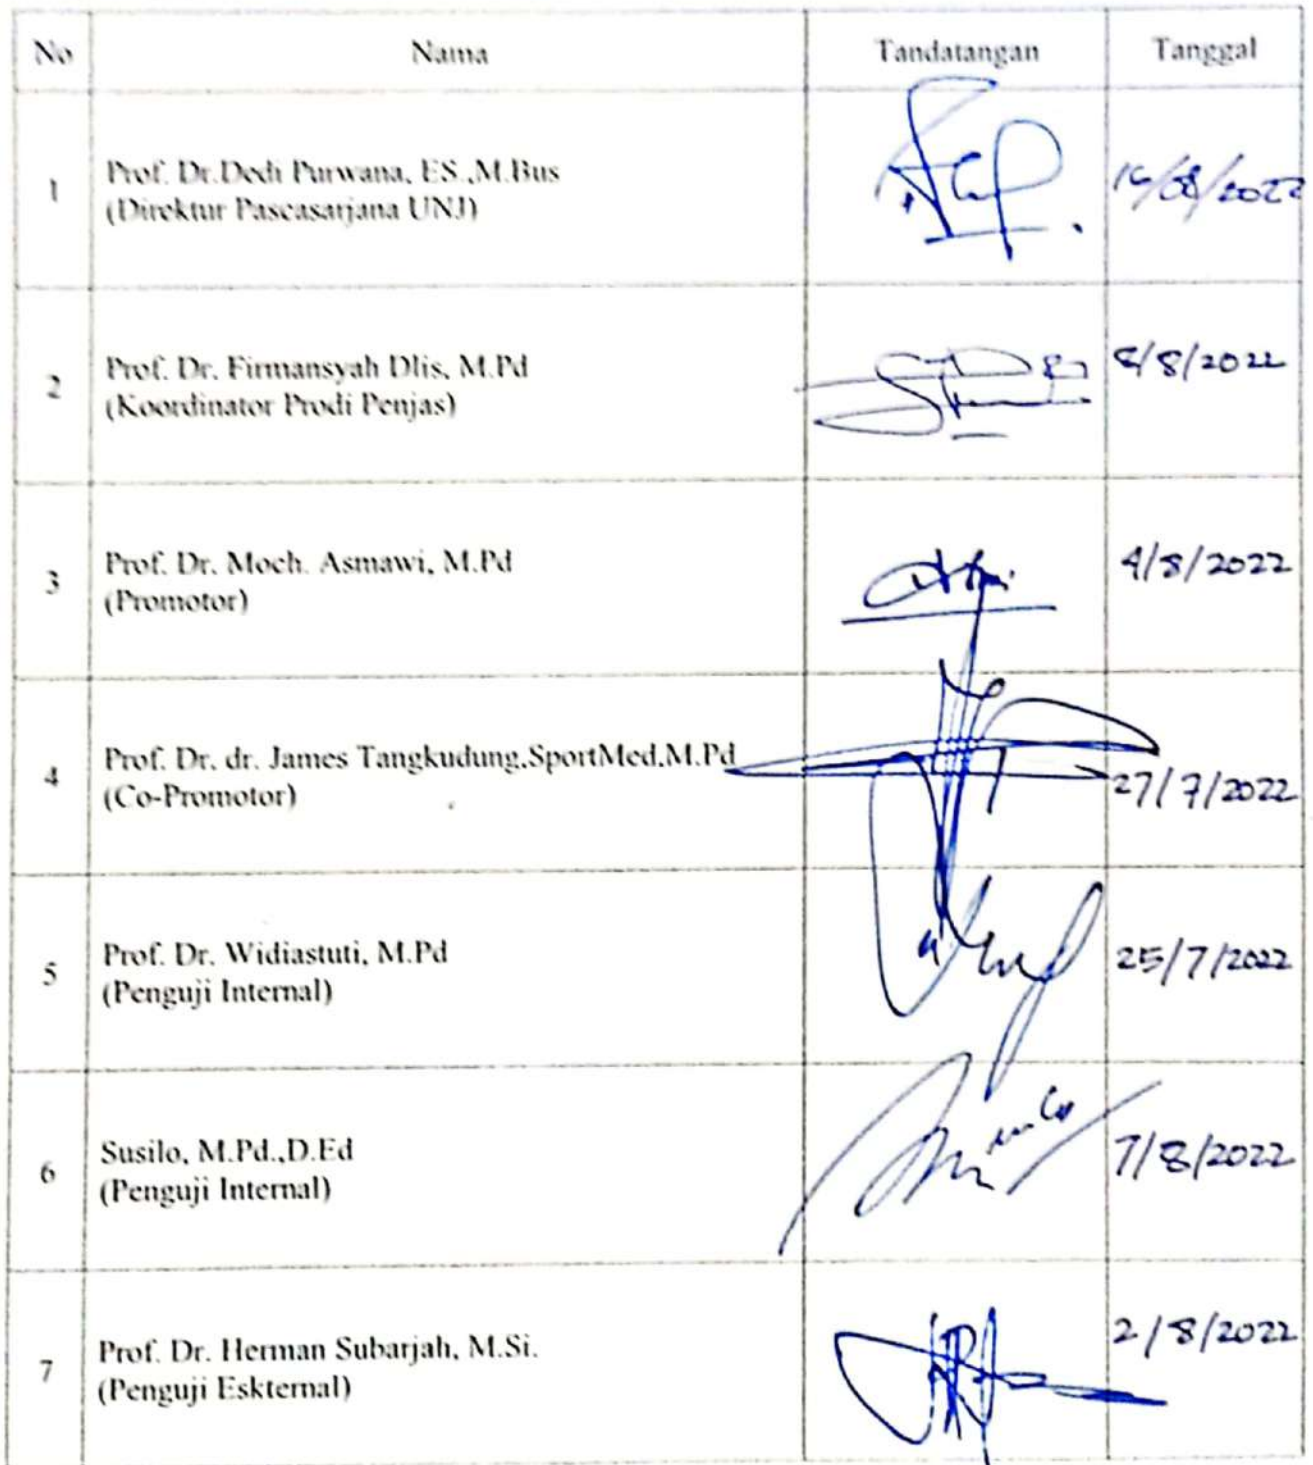 No Nama Tandatangan Tanggal
1 Prof. Dr.Dedi Purwana, ES.,M.Bus
(Direktur Pascasarjana UNJ)
/08/2022
2 Prof. Dr. Firmansyah Dlis, M.Pd
(Koordinator Prodi Penjas)
8/8/2022
3 Prof. Dr. Moch. Asmawi, M.Pd
(Promotor)
4/8/2022
4 Prof. Dr. dr. James Tangkudung,SportMed,M.Pd
(Co-Promotor)
27/7/2022
5 Prof. Dr. Widiastuti, M.Pd
(Penguji Internal)
25/7/2022
6 Susilo, M.Pd.,D.Ed
(Penguji Internal)
7/8/2022
7 Prof. Dr. Herman Subarjah, M.Si.
(Penguji Eskternal)
2/8/2022